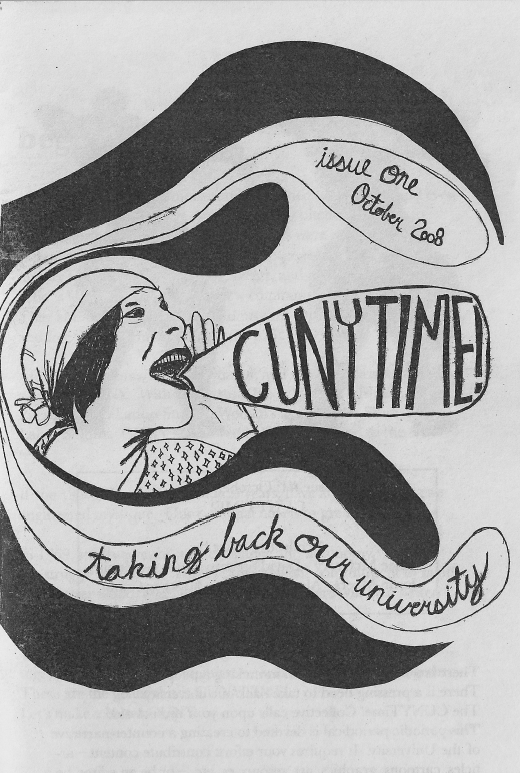 issue one
October 2008
CUNYTIME!
taking back our university